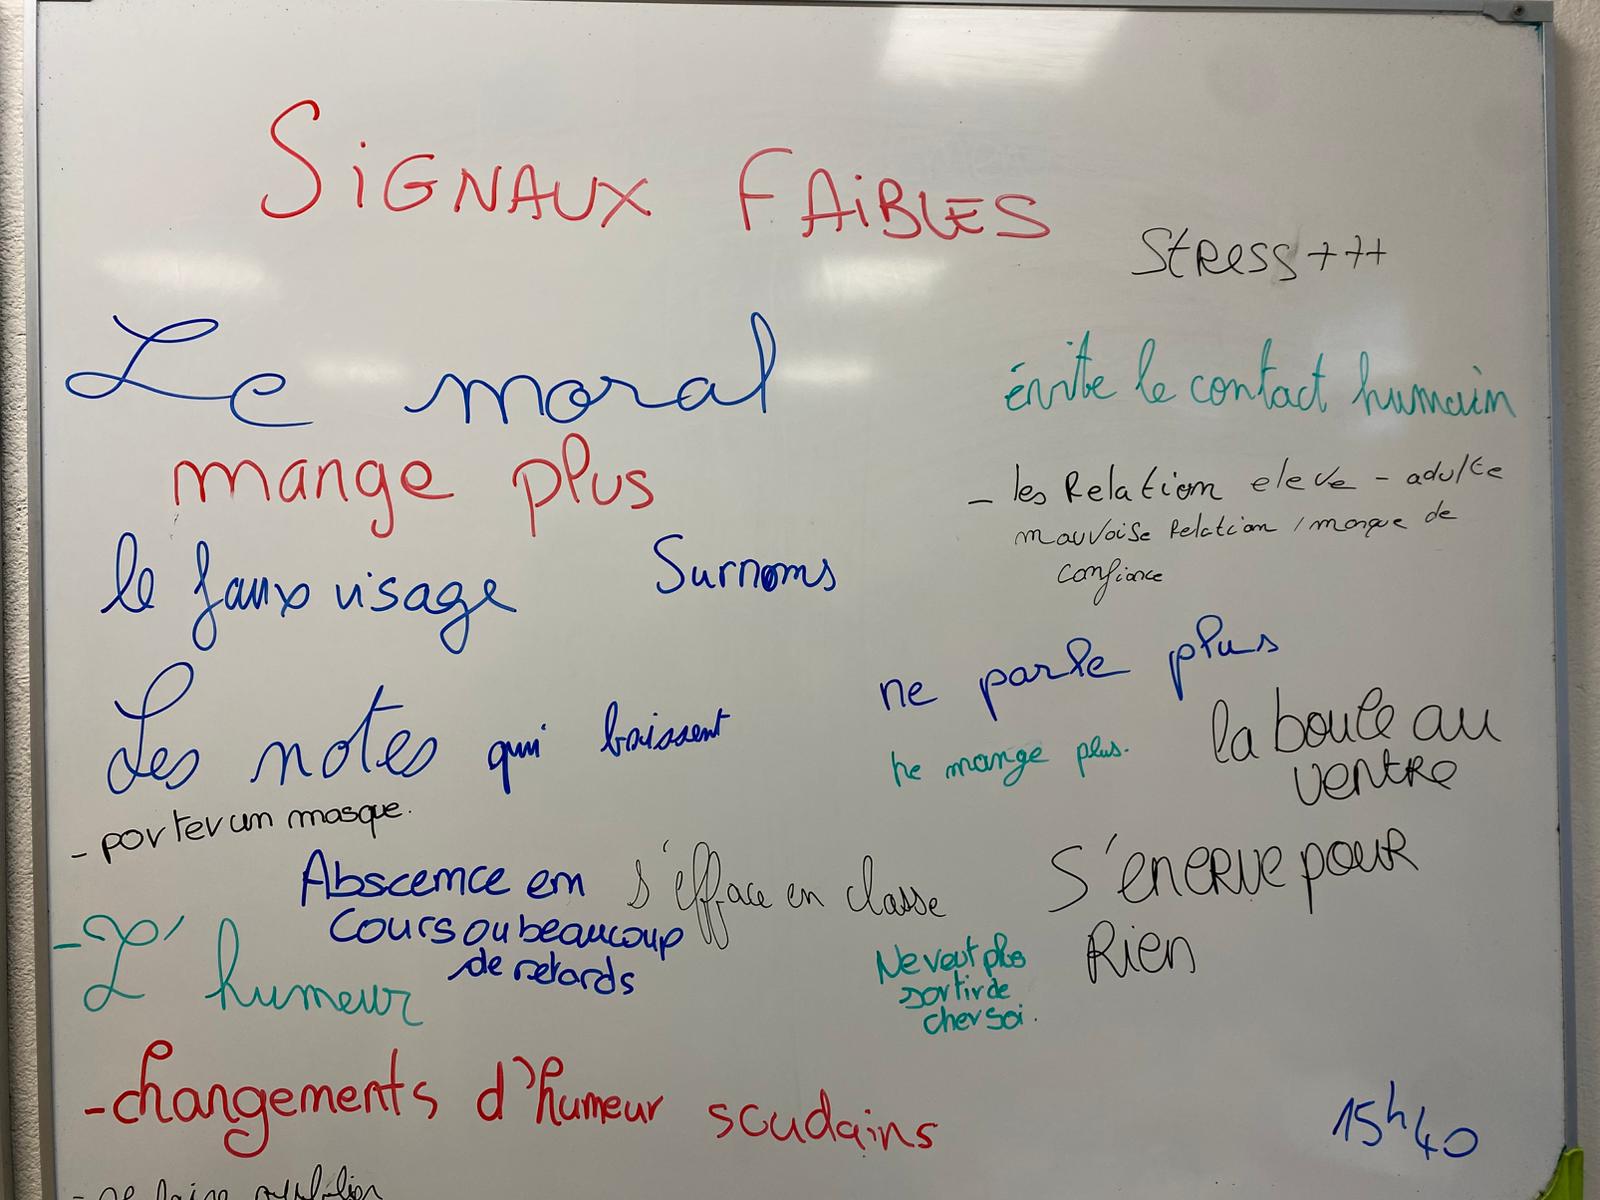 SiGNAUX FAiBLES
Stress +++
Le moral
évite le contact humain
mange plus
- les Relation eleve - adulte
mauvaise Relation / manque de
confiance
le faux visage
Surnoms
ne parle plus
Les notes qui baissent
ne mange plus.
la boule au
ventre
- porter un masque.
Abscence en
cours ou beaucoup
de retards
s'efface en classe
S'enerve pour
Rien
- L'humeur
Ne veut plus
sortir de
cher soi.
- changements d'humeur soudains
15h40
- se faire oublier